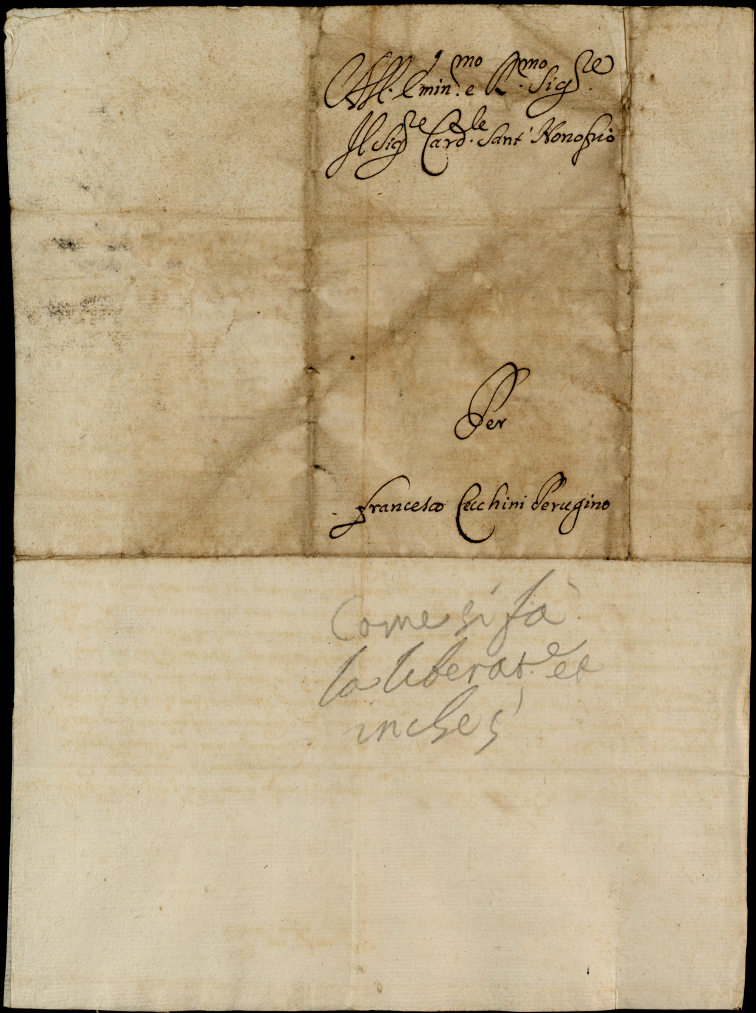 All. Emin.mo e R.mo Sig.re
Il Sig.re Card.le Sant' Honofrio
Per
Francesco Cecchini Perugino
Come si fà
la liberat.e et